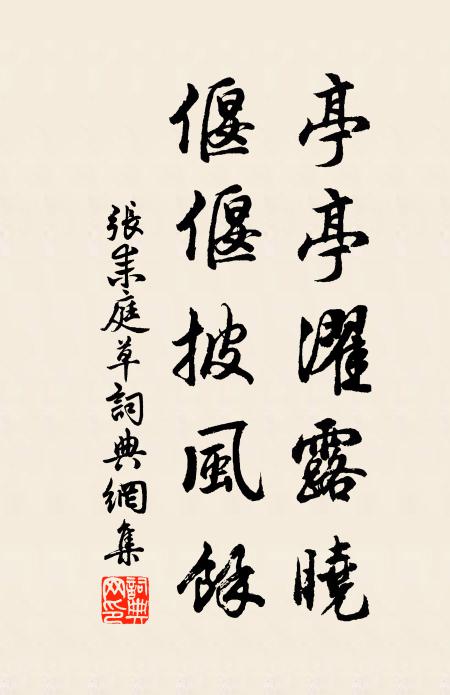 亭亭濯露曉
偃偃披風餘
張耒庭草詞典網集
詞典网印